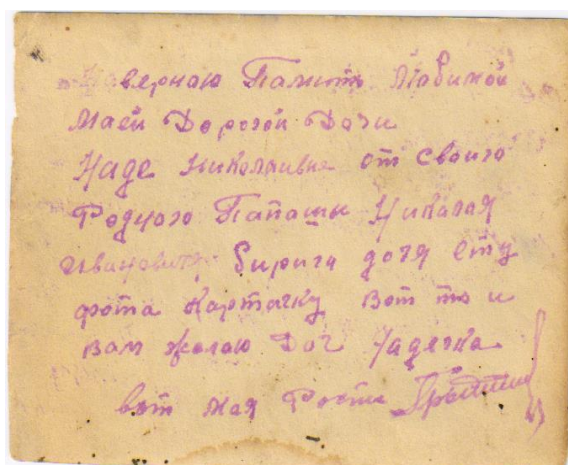 На вернаю Памить Любимой
Маей Дорогой Дочи
Наде Николаивне от своиго
Родного Папашы Николая
Ивановича бириги дочя Ету
фота Картачку вот то и
вам желаю Доч Надечка
вот мая Роспи